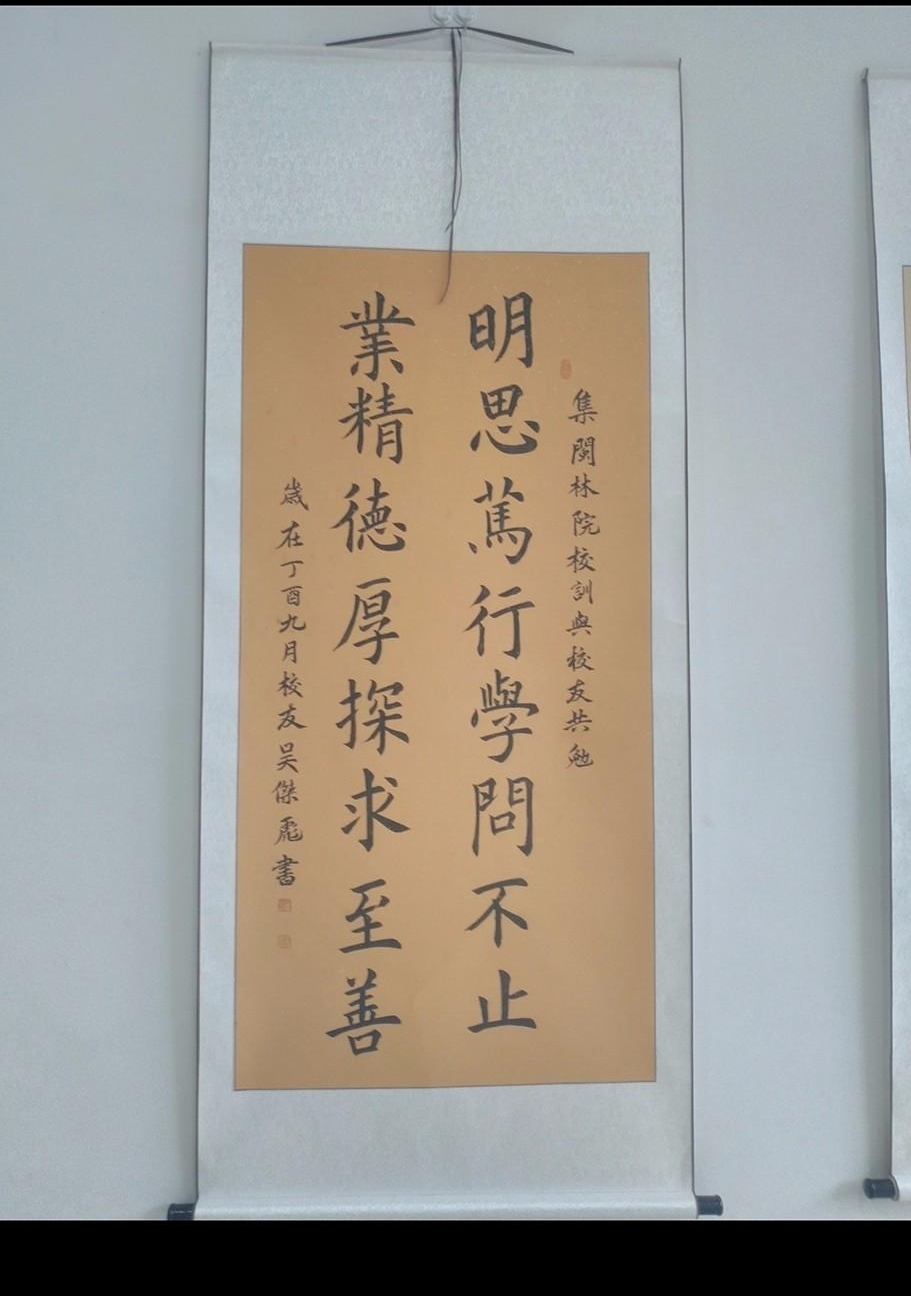 集閩林院校訓與校友共勉
明思篤行學問不止
業精德厚探求至善
歲在丁酉九月校友吴傑彪書